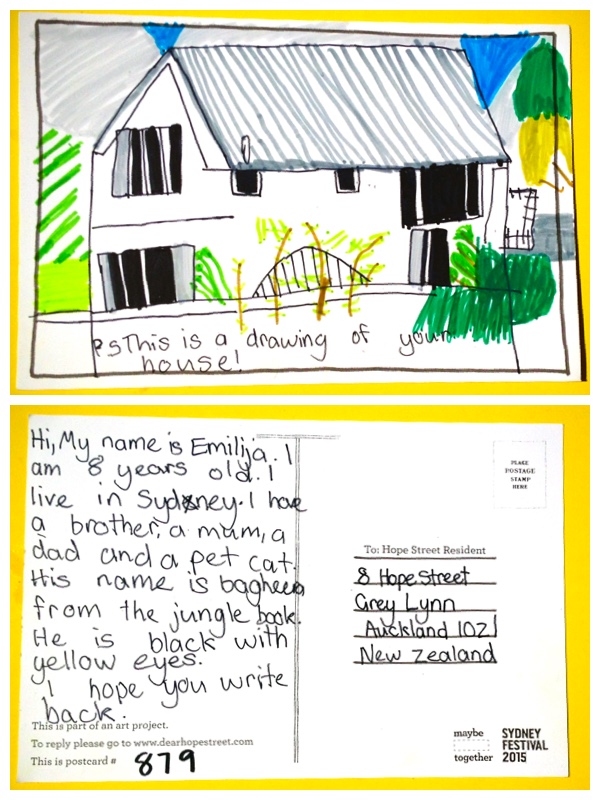 PS This is a drawing of your
house!
Hi, My name is Emilija. I
am 8 years old. I
live in Sydney. I have
a brother, a mum, a
dad and a pet cat.
His name is bagheera
from the jungle book.
He is black with
yellow eyes.
I hope you write
back.
This is part of an art project.
To reply please go to www.dearhopestreet.com
This is postcard # 879
PLACE
POSTAGE
STAMP
HERE
To: Hope Street Resident
8 Hope Street
Grey Lynn
Auckland 1021
New Zealand
maybe
together
SYDNEY
FESTIVAL
2015